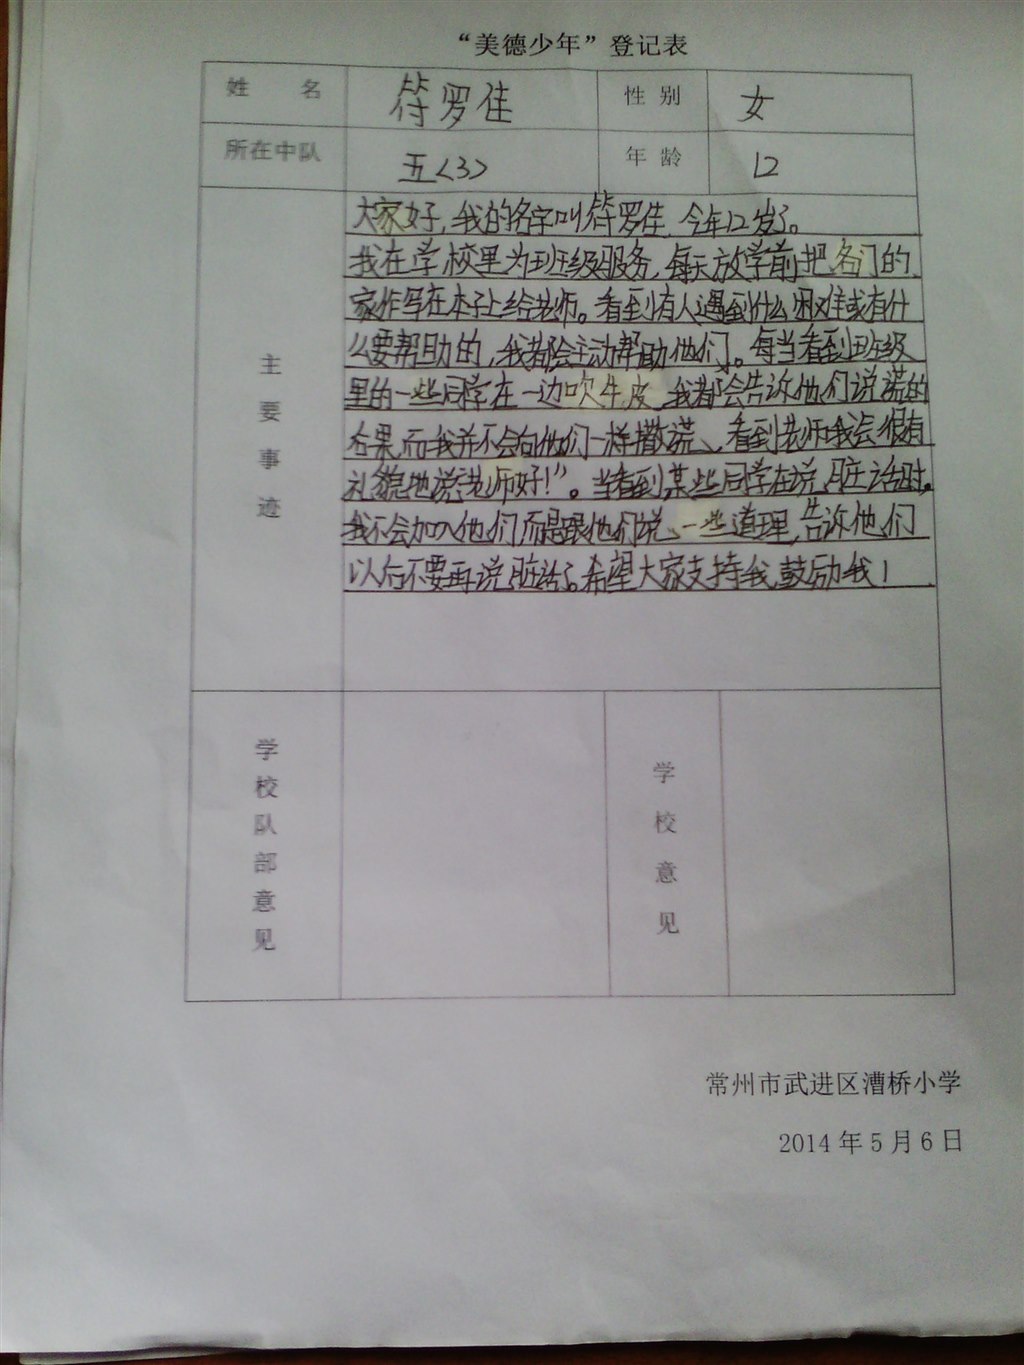 “美德少年”登记表
姓 名 符罗佳 性 别 女
所在中队 五<3> 年 龄 12
主要事迹
大家好，我的名字叫符罗佳，今年12岁了。
我在学校里为班级服务，每天放学前把各门的
家作写在本子上给老师。看到有人遇到什么困难或有什
么要帮助的，我都会主动帮助他们。每当看到班级
里的一些同学在一边吹牛皮，我都会告诉他们说谎的
后果，而我并不会向他们一样撒谎、看到老师我会很有
礼貌地说“老师好！”。当看到某些同学在说脏话时，
我不会加入他们而是跟他们说一些道理，告诉他们
以后不要再说脏话了。希望大家支持我，鼓励我！
学校队部意见
学校意见
常州市武进区漕桥小学
2014年5月6日